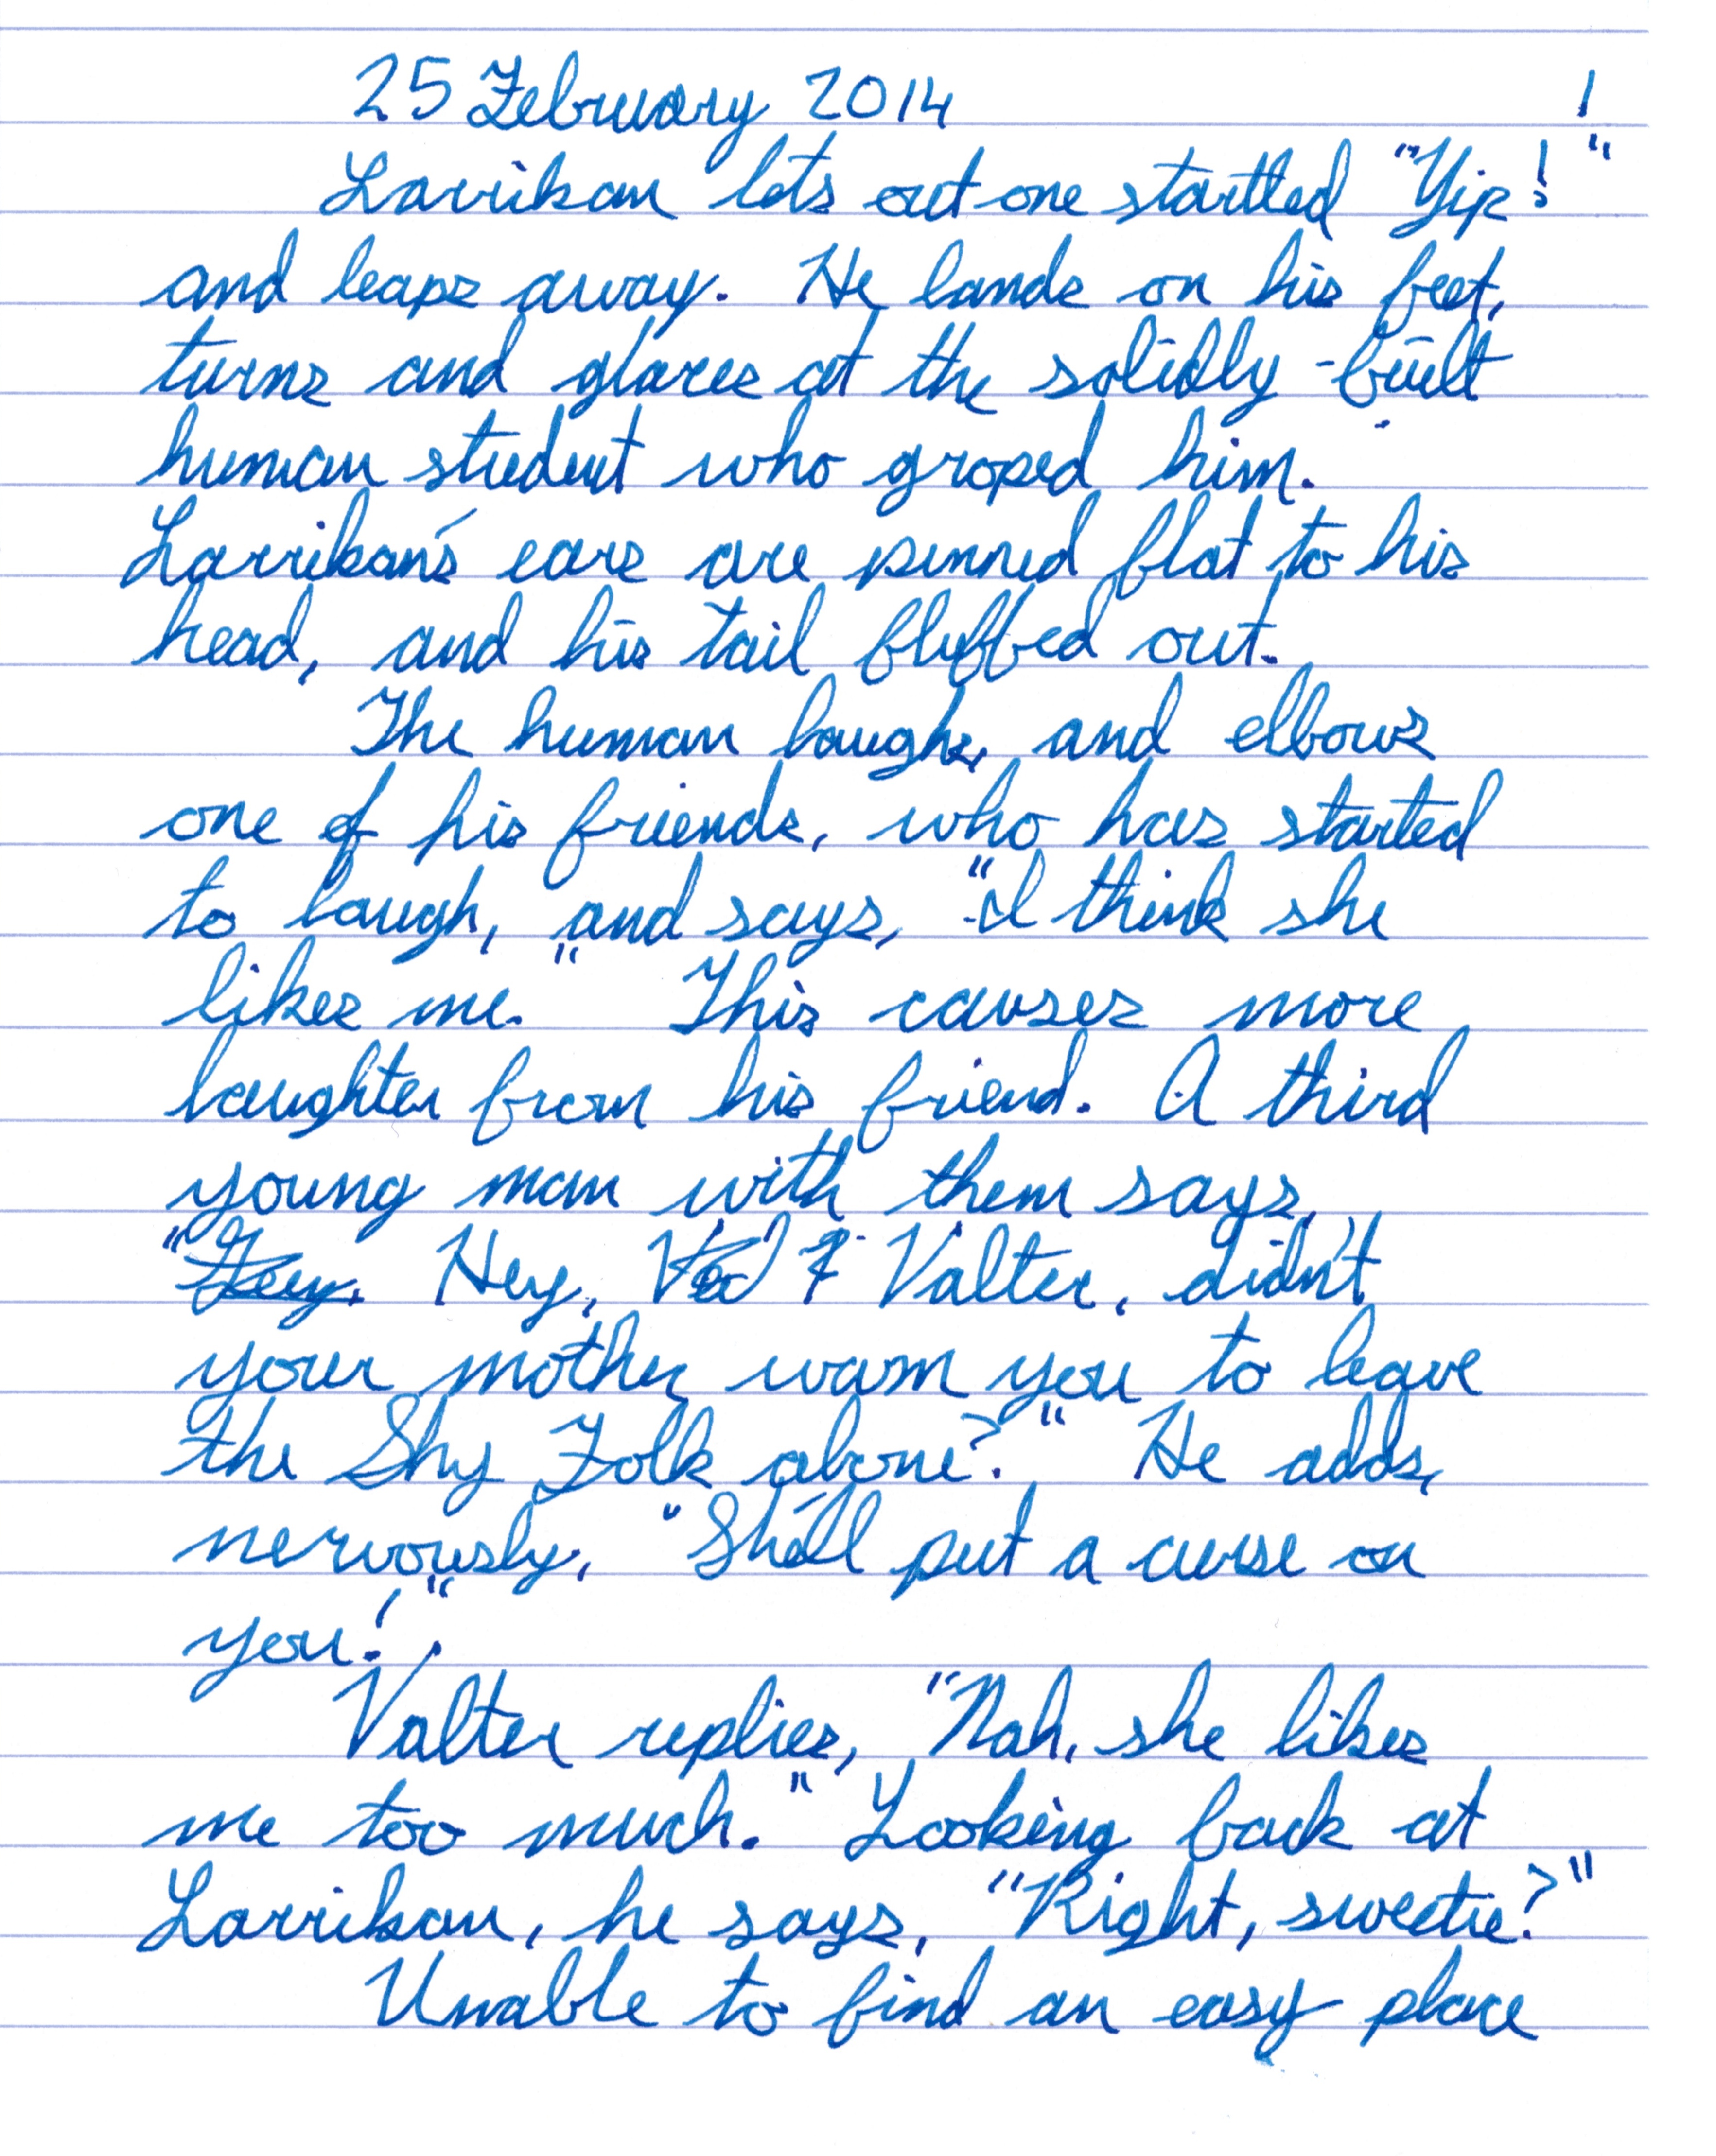 25 February 2014
Larrikan lets out one startled "Yip!"
and leaps away. He lands on his feet,
turns and glares at the solidly-built
human student who groped him.
Larrikan's ears are pinned flat to his
head, and his tail fluffed out.
The human laughs, and elbows
one of his friends, who has started
to laugh, and says, "I think she
likes me." This causes more
laughter from his friend. A third
young man with them says,
"Hey, Valter, didn't
your mother warn you to leave
the Shy Folk alone?" He adds,
nervously, "She'll put a curse on
you!"
Valter replies, "Nah, she likes
me too much." Looking back at
Larrikan, he says, "Right, sweetie?"
Unable to find an easy place